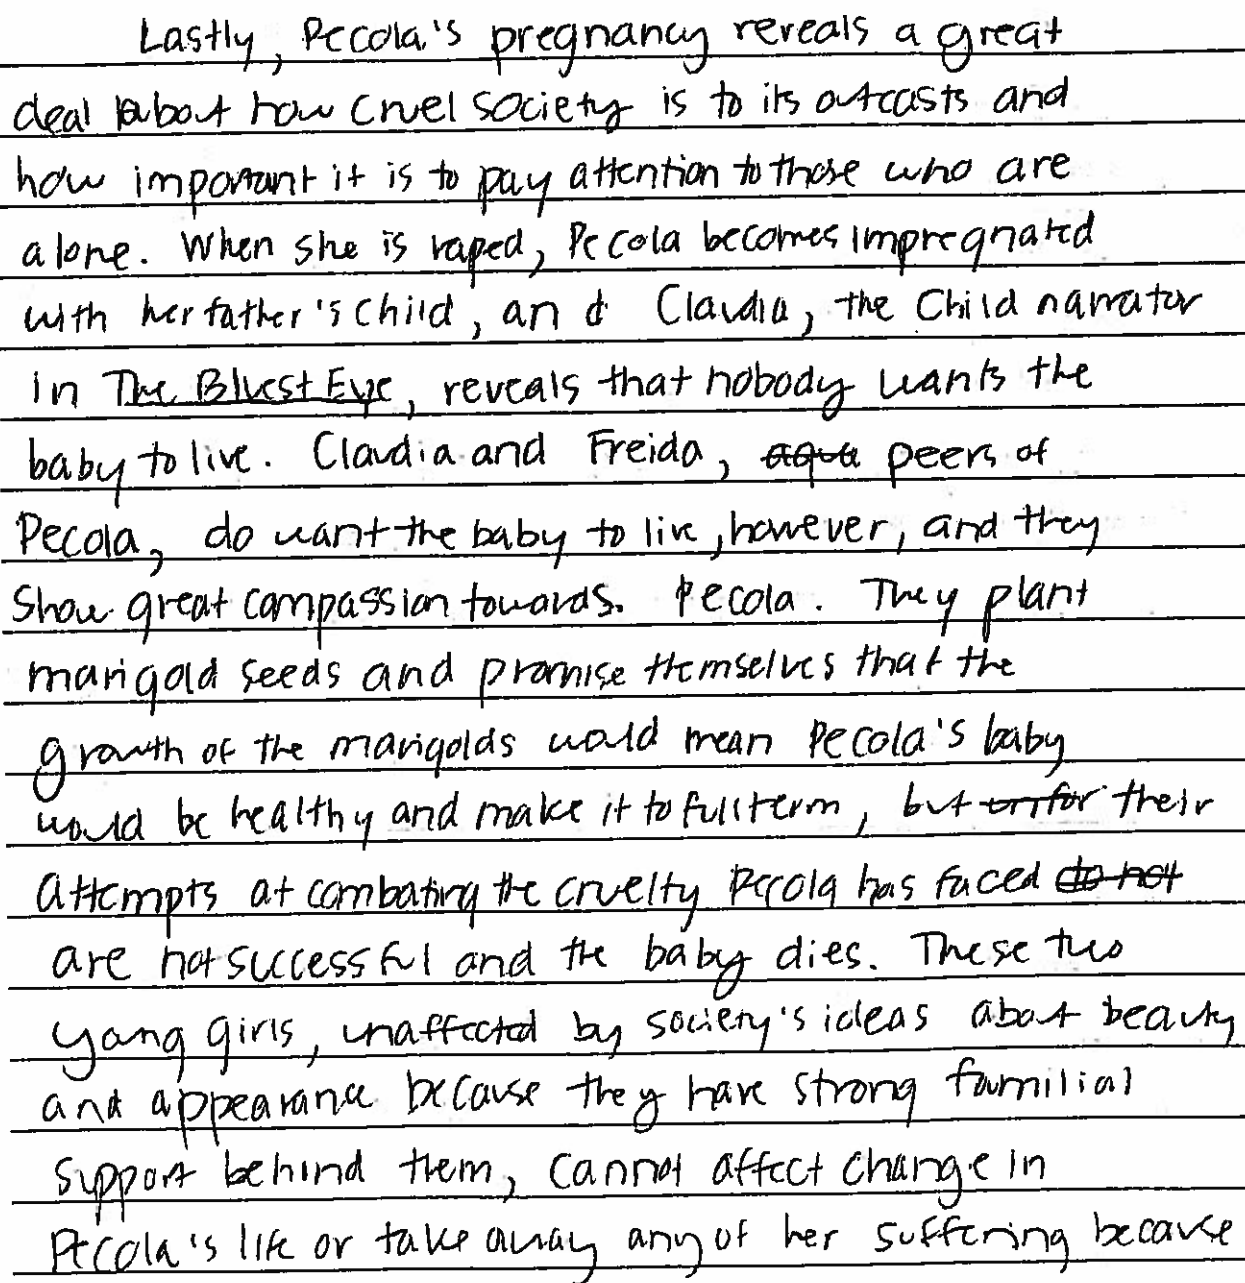 Lastly, Pecola's pregnancy reveals a great
deal about how cruel society is to its outcasts and
how important it is to pay attention to those who are
alone. When she is raped, Pecola becomes impregnated
with her father's child, and Claudia, the child narrator
in The Bluest Eye, reveals that nobody wants the
baby to live. Claudia and Freida, aqua peers of
Pecola, do want the baby to live, however, and they
show great compassion towards. Pecola. They plant
marigold seeds and promise themselves that the
growth of the marigolds would mean Pecola's baby
would be healthy and make it to full term, but unfor their
attempts at combating the cruelty Pecola has faced do not
are not successful and the baby dies. These two
young girls, unaffected by society's ideas about beauty
and appearance because they have strong familial
support behind them, cannot affect change in
Pecola's life or take away any of her suffering because